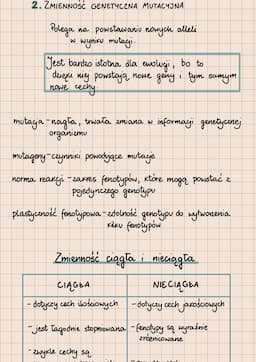 2. ZMIENNOŚĆ GENETYCZNA MUTACYJNA
Polega na powstawaniu nowych alleli
w wyniku mutacji.
Jest bardzo istotna dla ewolucji, bo to
dzięki niej powstają nowe geny i tym samym
nowe cechy
mutacja - nagła, trwała zmiana w informacji genetycznej
organizmu
mutageny - czynniki powodujące mutacje
norma reakcji - zakres fenotypów, które mogą powstać z
pojedynczego genotypu
plastyczność fenotypowa - zdolność genotypu do wytworzenia
kilku fenotypów
Zmienność ciągła i nieciągła
CIĄGŁA NIECIĄGŁA
- dotyczy cech ilościowych - dotyczy cech jakościowych
- jest łagodnie stopniowana - fenotypy są wyraźnie
zróżnicowane
- zwykle cechy są